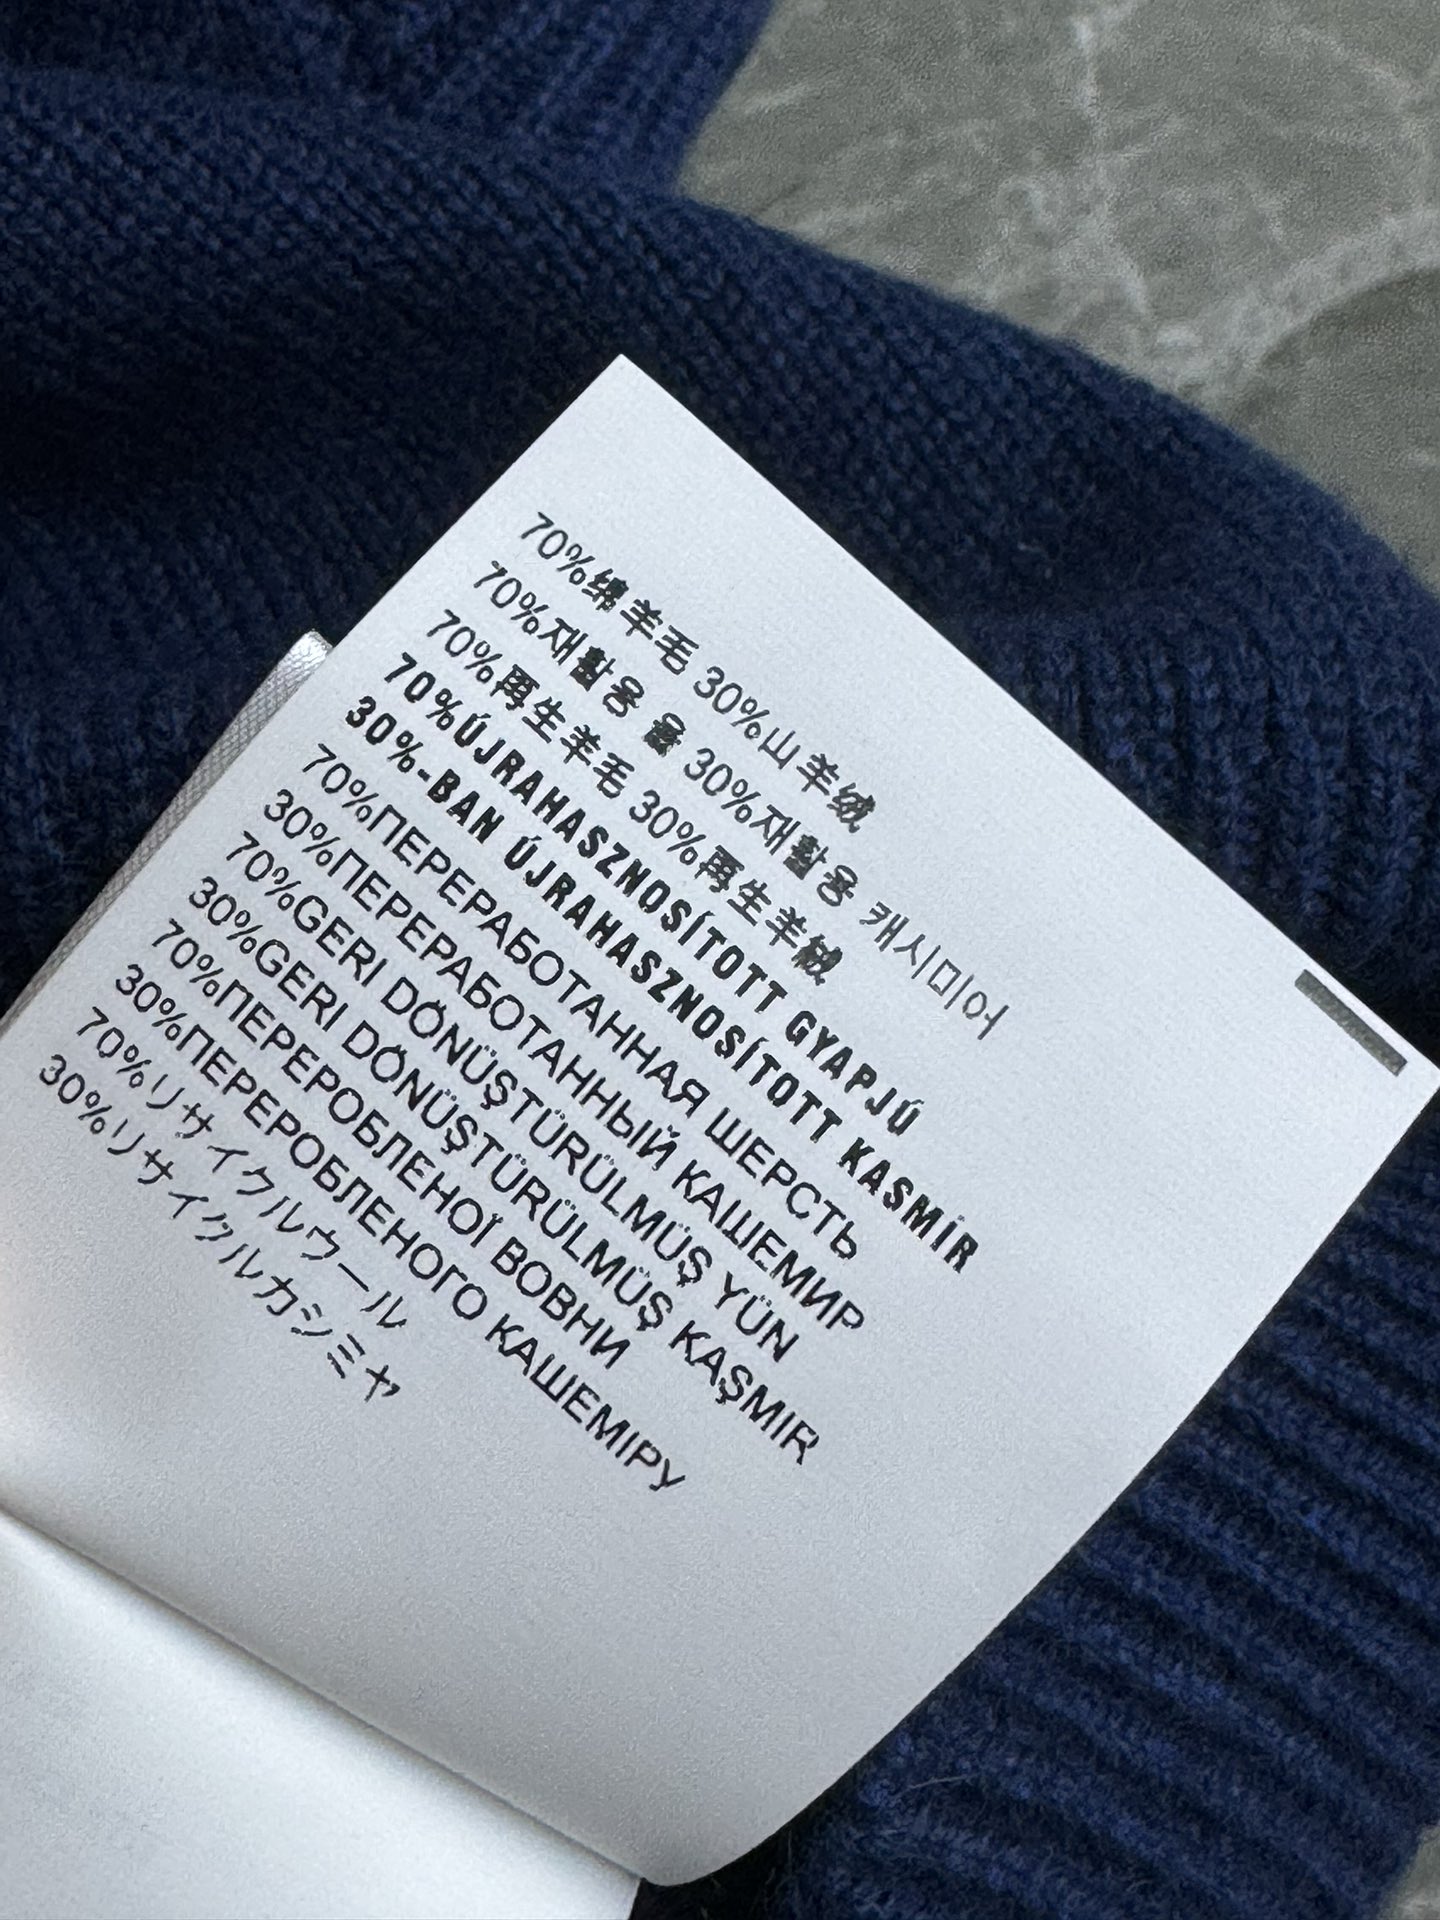 70%绵羊毛 30%山羊绒
70%재활용 울 30%재활용 캐시미어
70%再生羊毛 30%再生羊絨
70%ÚJRAHASZNOSÍTOTT GYAPJÚ
30%-BAN ÚJRAHASZNOSÍTOTT KASMÍR
70%ПЕРЕРАБОТАННАЯ ШЕРСТЬ
30%ПЕРЕРАБОТАННЫЙ КАШЕМИР
70%GERI DÖNÜŞTÜRÜLMÜŞ YÜN
30%GERI DÖNÜŞTÜRÜLMÜŞ KAŞMIR
70%ПЕРЕРОБЛЕНОЇ ВОВНИ
30%ПЕРЕРОБЛЕНОГО КАШЕМІРУ
70%リサイクルウール
30%リサイクルカシミヤ